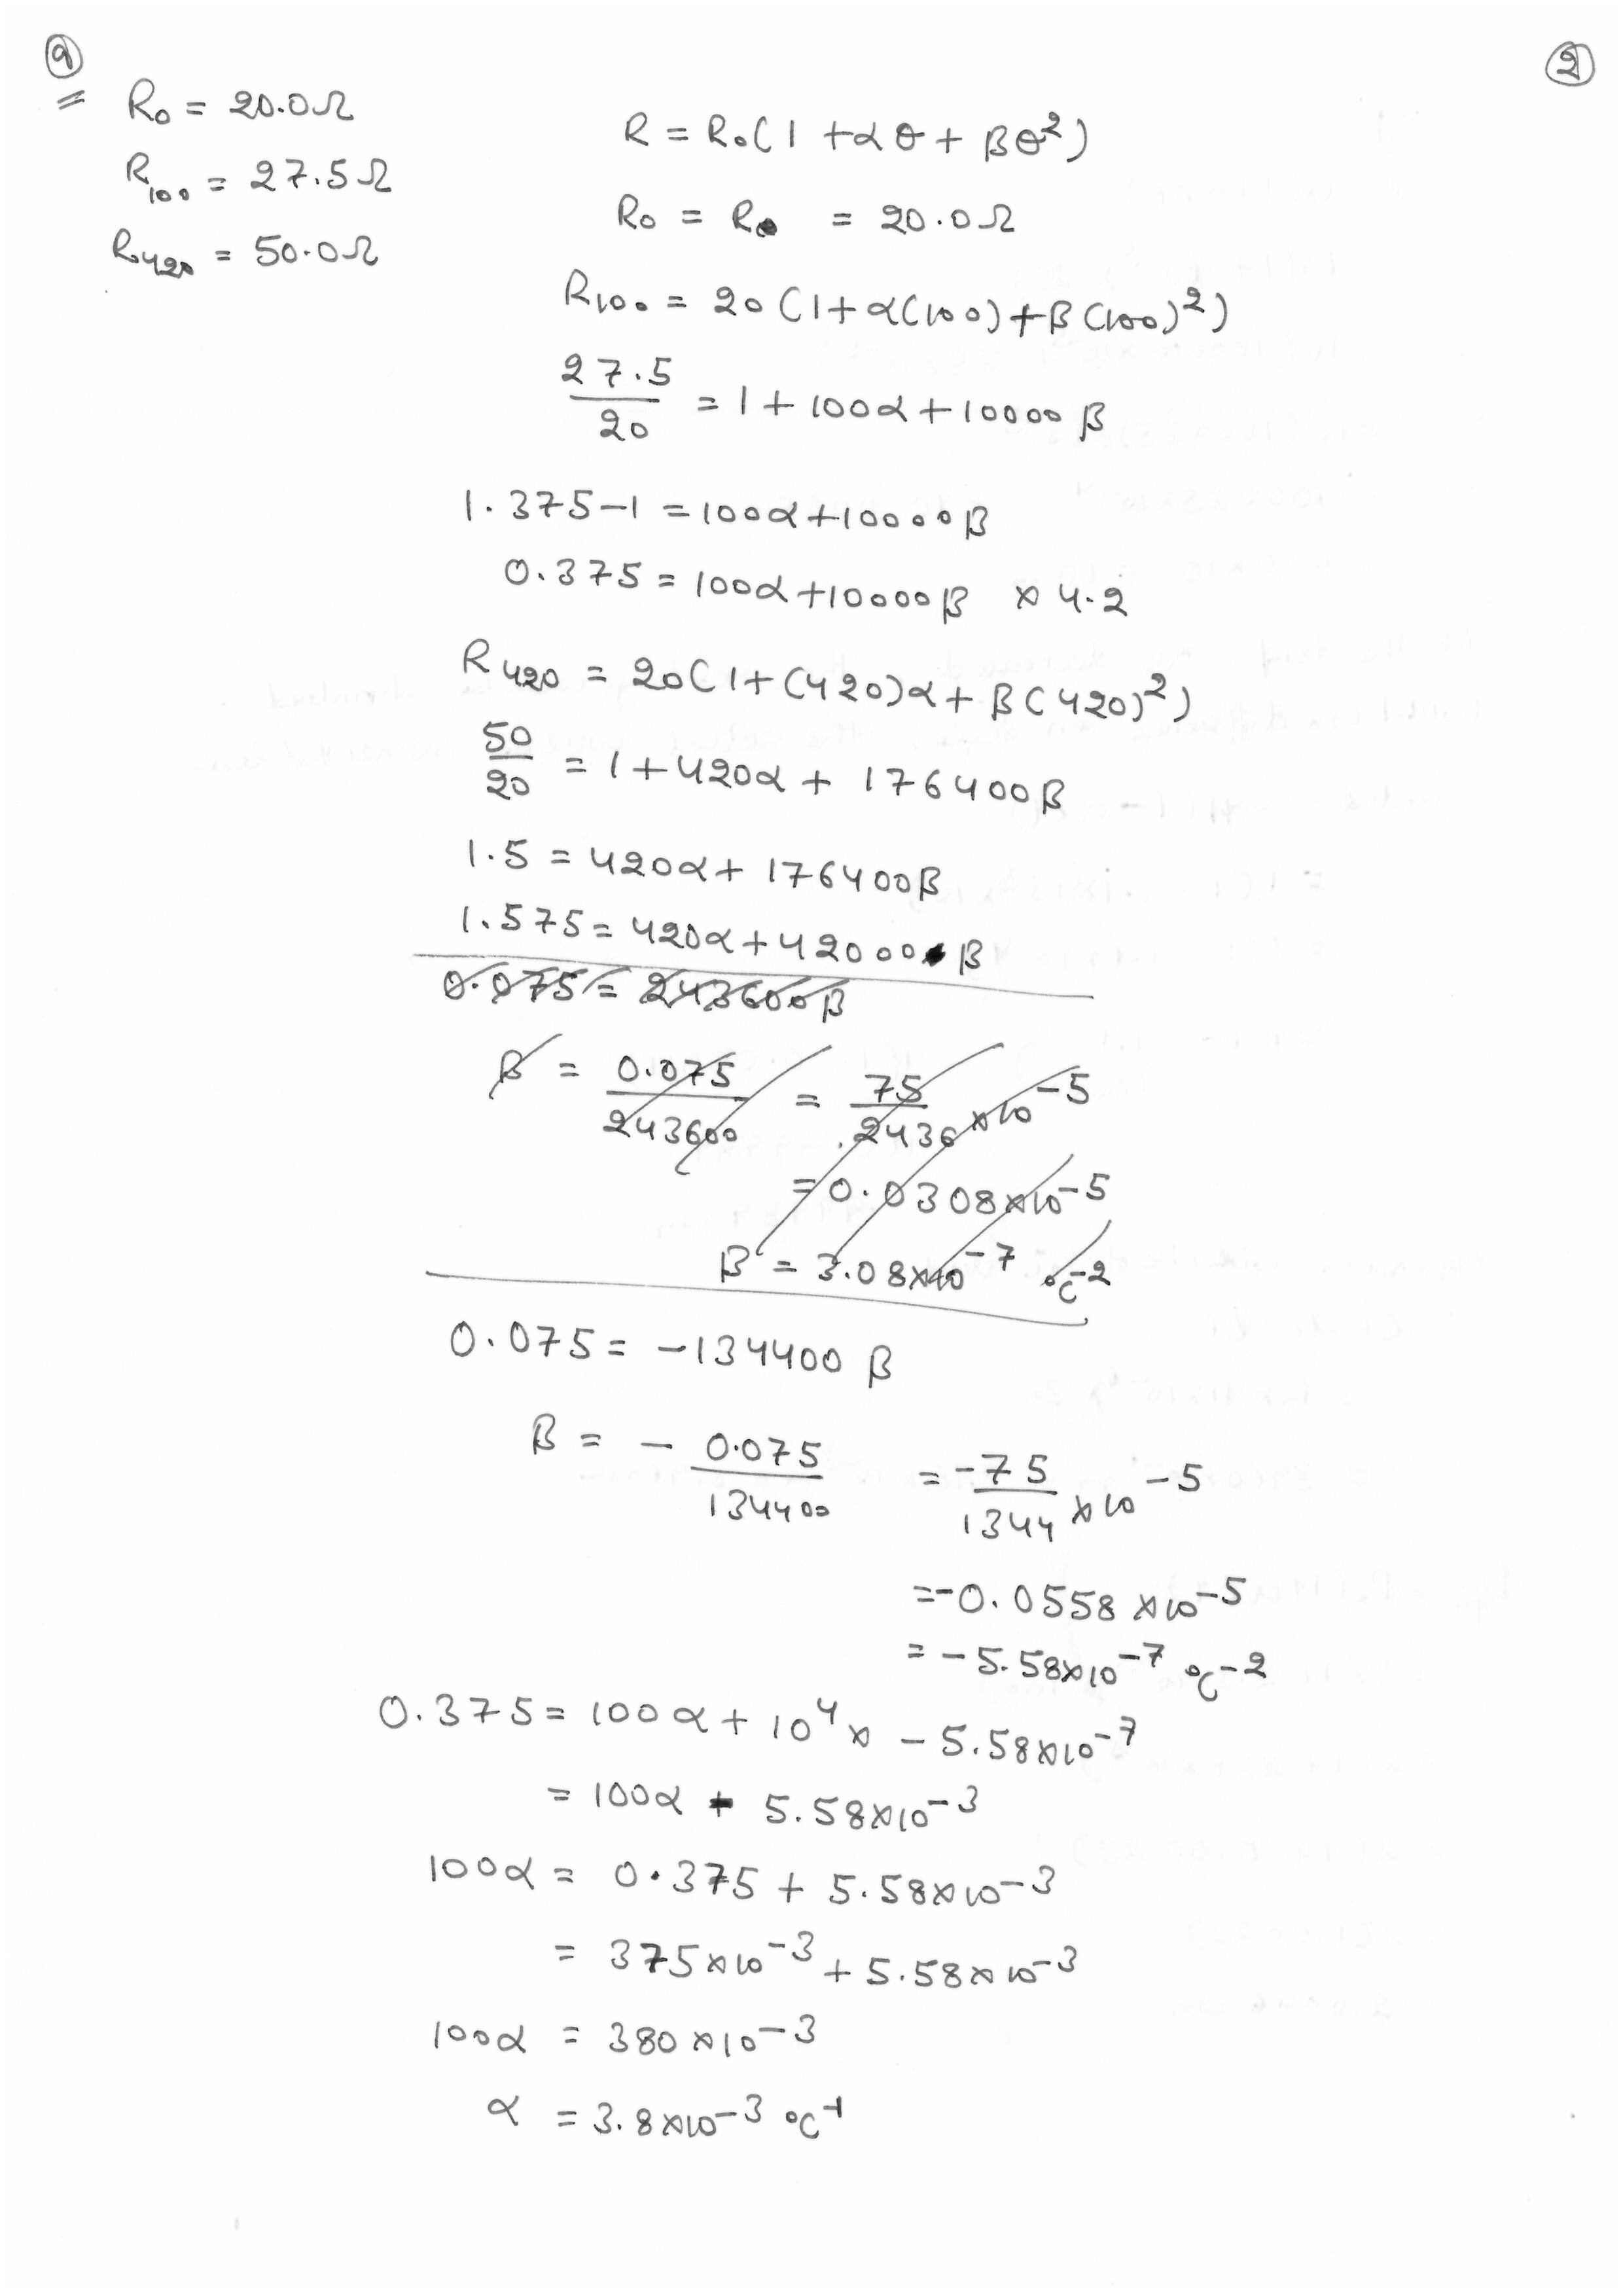 9
2
R₀ = 20.0Ω
R₁₀₀ = 27.5Ω
R₄₂₀ = 50.0Ω
R = R₀(1 + αθ + βθ²)
R₀ = R₀ = 20.0Ω
R₁₀₀ = 20(1+α(100)+β(100)²)
27.5/20 = 1+100α+10000β
1.375-1 = 100α+10000β
0.375 = 100α+10000β × 4.2
R₄₂₀ = 20(1+(420)α+β(420)²)
50/20 = 1+420α+ 176400β
1.5 = 420α+ 176400β
1.575 = 420α+42000β
0.075 = 243600β
β = 0.075/243600 = 75/2436 ×10⁻⁵
= 0.0308×10⁻⁵
β = 3.08×10⁻⁷ °C⁻²
0.075 = -134400 β
β = - 0.075/134400 = -75/1344 ×10⁻⁵
=-0.0558×10⁻⁵
= -5.58×10⁻⁷ °C⁻²
0.375 = 100α+10⁴× -5.58×10⁻⁷
= 100α - 5.58×10⁻³
100α = 0.375 + 5.58×10⁻³
= 375×10⁻³ + 5.58×10⁻³
100α = 380×10⁻³
α = 3.8×10⁻³ °C⁻¹